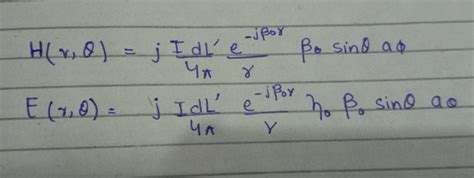 H(r,θ) = j IdL'/4π e^-jβ₀r/r β₀ sinθ aϕ
E(r,θ) = j IdL'/4π e^-jβ₀r/r η₀ β₀ sinθ aθ